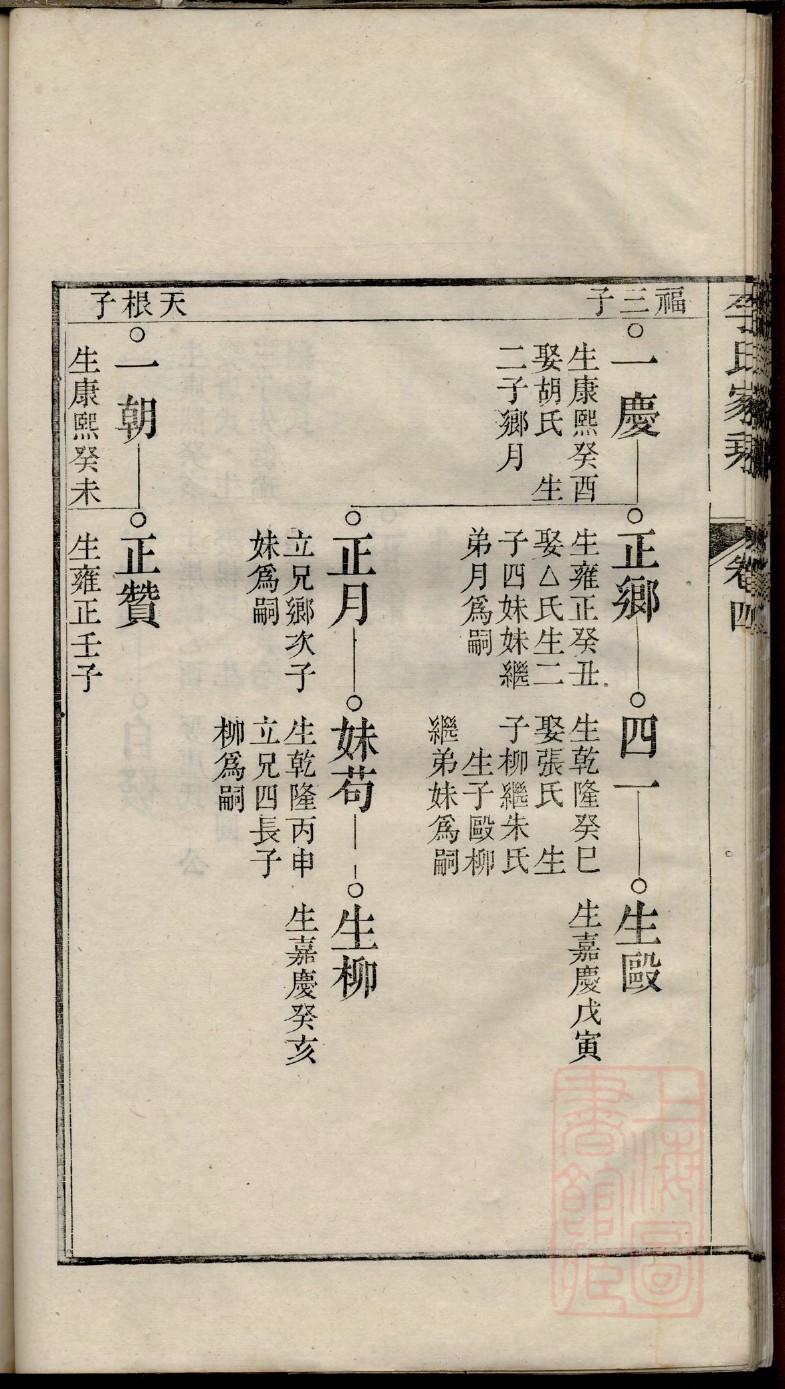 李氏家乘
卷四
福三子
一慶
生康熙癸酉
娶胡氏　生
二子鄉月
正鄉
生雍正癸丑
娶△氏生二
子四妹妹繼
弟月為嗣
四一
生乾隆癸巳
娶張氏　生
子柳繼朱氏
生子毆柳
繼弟妹為嗣
生毆
生嘉慶戊寅
正月
立兄鄉次子
妹為嗣
妹苟
生乾隆丙申
立兄四長子
柳為嗣
生柳
生嘉慶癸亥
天根子
一朝
生康熙癸未
正贊
生雍正壬子
上海圖
書館藏